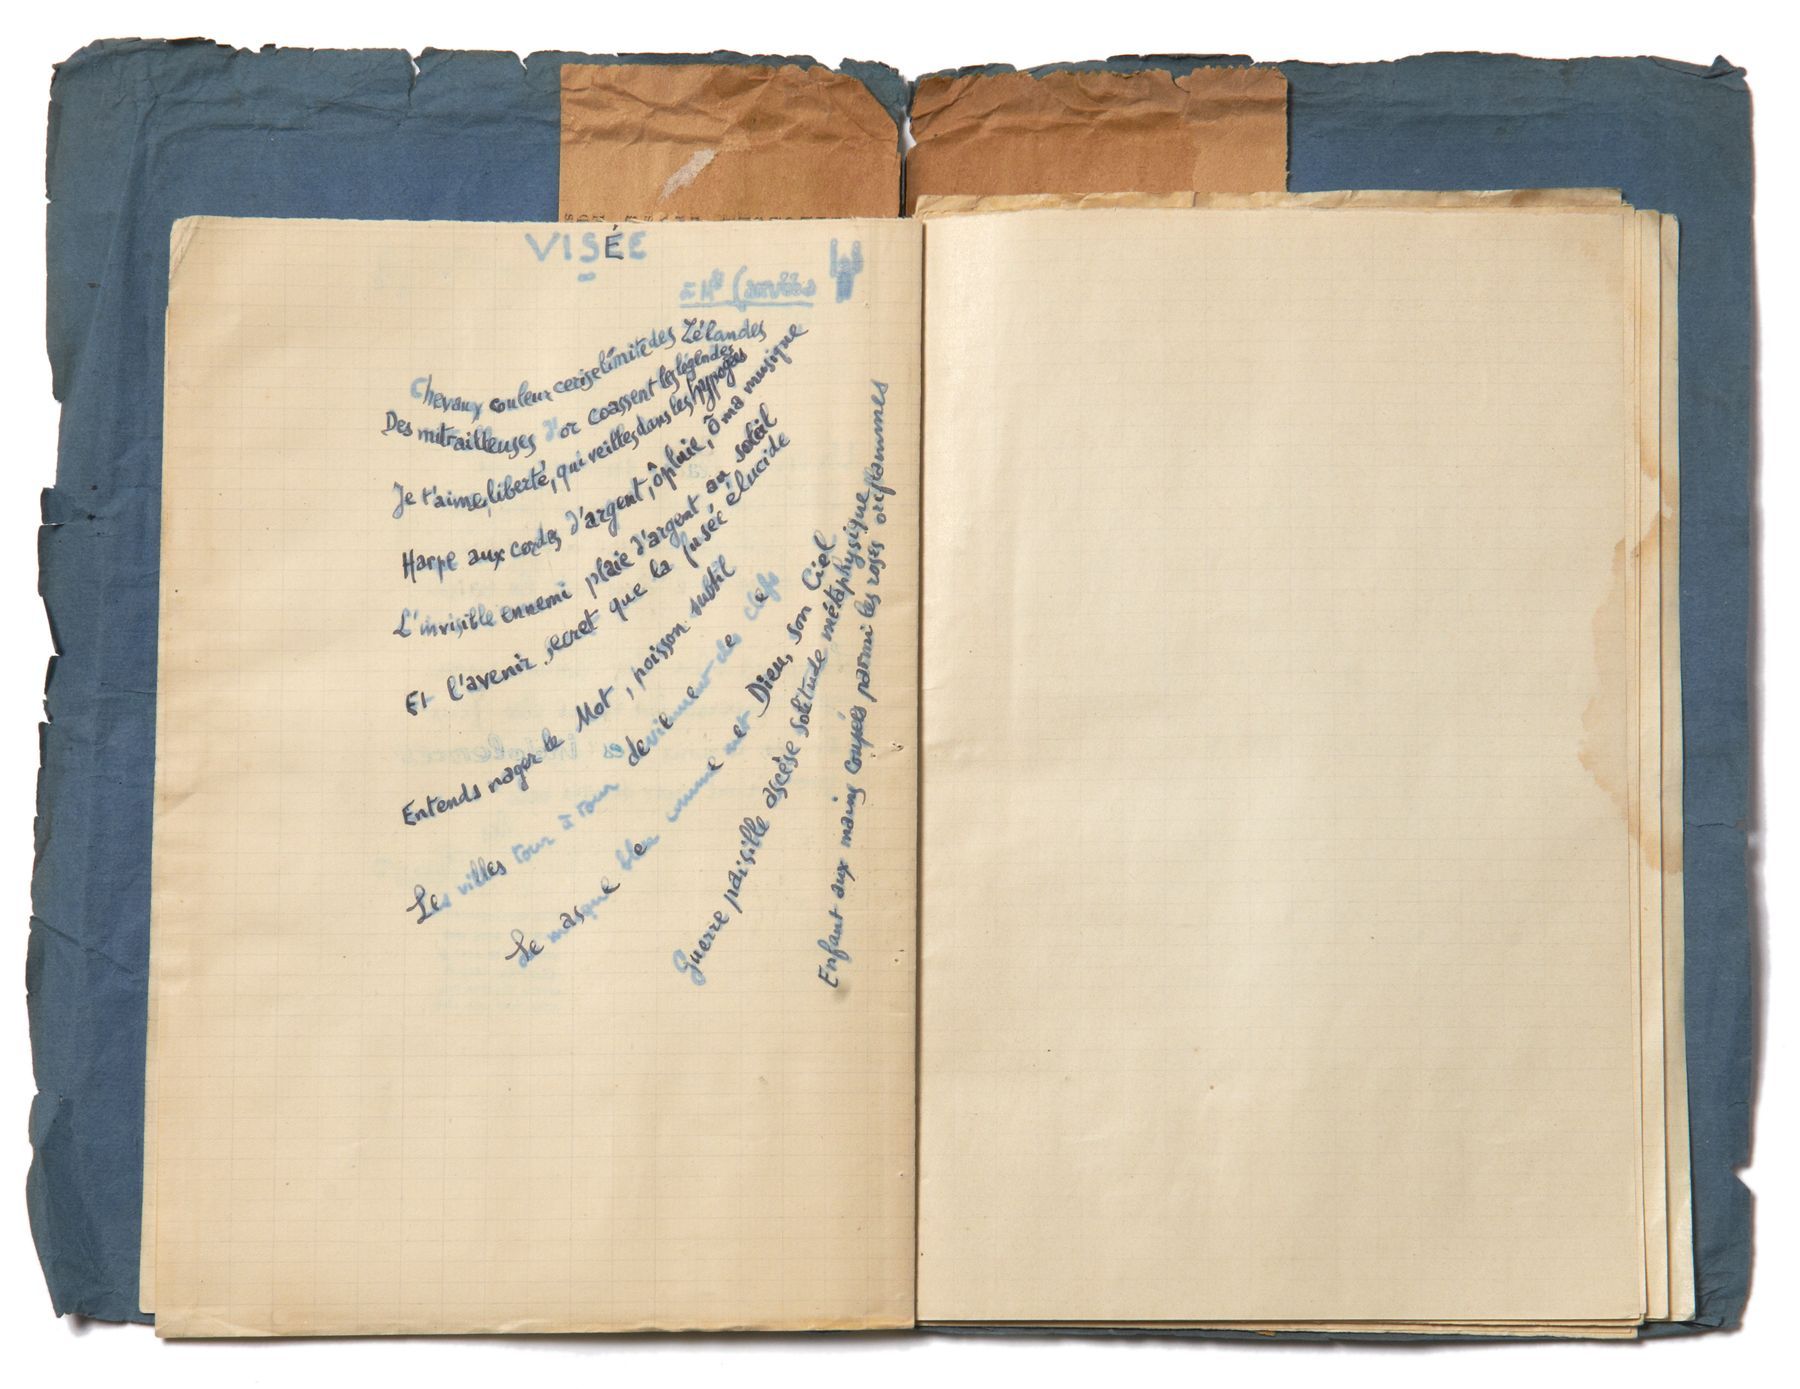 VISÉE
à Mme
Chevaux couleur cerise limite des Zélandes
Des mitrailleuses d'or coassent les légendes
Je t'aime, liberté, qui veilles dans les hypogées
Harpe aux cordes d'argent, ô pluie, ô ma musique
L'invisible ennemi plaie d'argent au soleil
Et l'avenir secret que la fusée élucide
Entends nager le Mot, poisson subtil
Les villes tour à tour deviennent des clefs
Le masque bleu comme met Dieu, son Ciel
Guerre paisible ascèse solitude métaphysique
Enfant aux mains coupées parmi les roses oriflammes